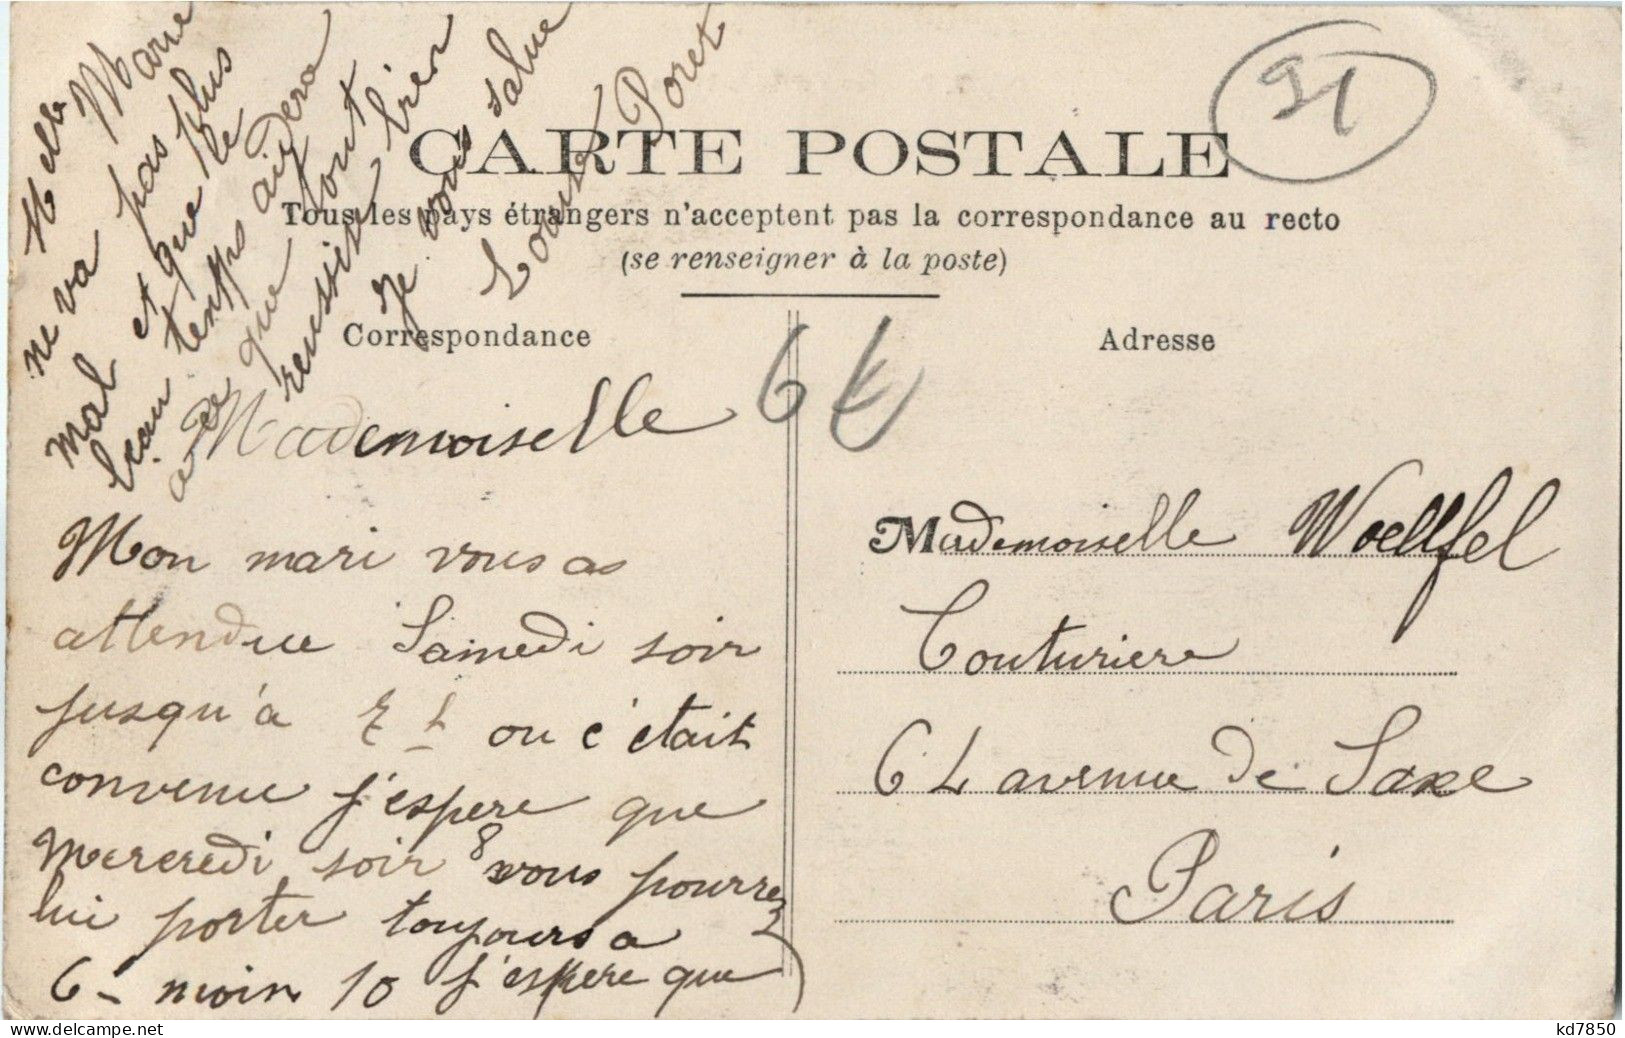 91
CARTE POSTALE
Tous les pays étrangers n'acceptent pas la correspondance au recto
(se renseigner à la poste)
Correspondance
Adresse
Mademoiselle
Mon mari vous as
attendue Samedi soir
jusqu'à ou c'était
convenue j'espere que
Mercredi soir 8 vous pourrez
lui porter toujours a
6 - moin 10 j'espere que
Melle Marie
ne va pas plus
mal et que le
beau temps aidera
a ce que tout
reussise bien
Je vous salue
Louise Poret
Mademoiselle Woellfel
Couturiere
64 avenue de Saxe
Paris
kd7850
www.delcampe.net